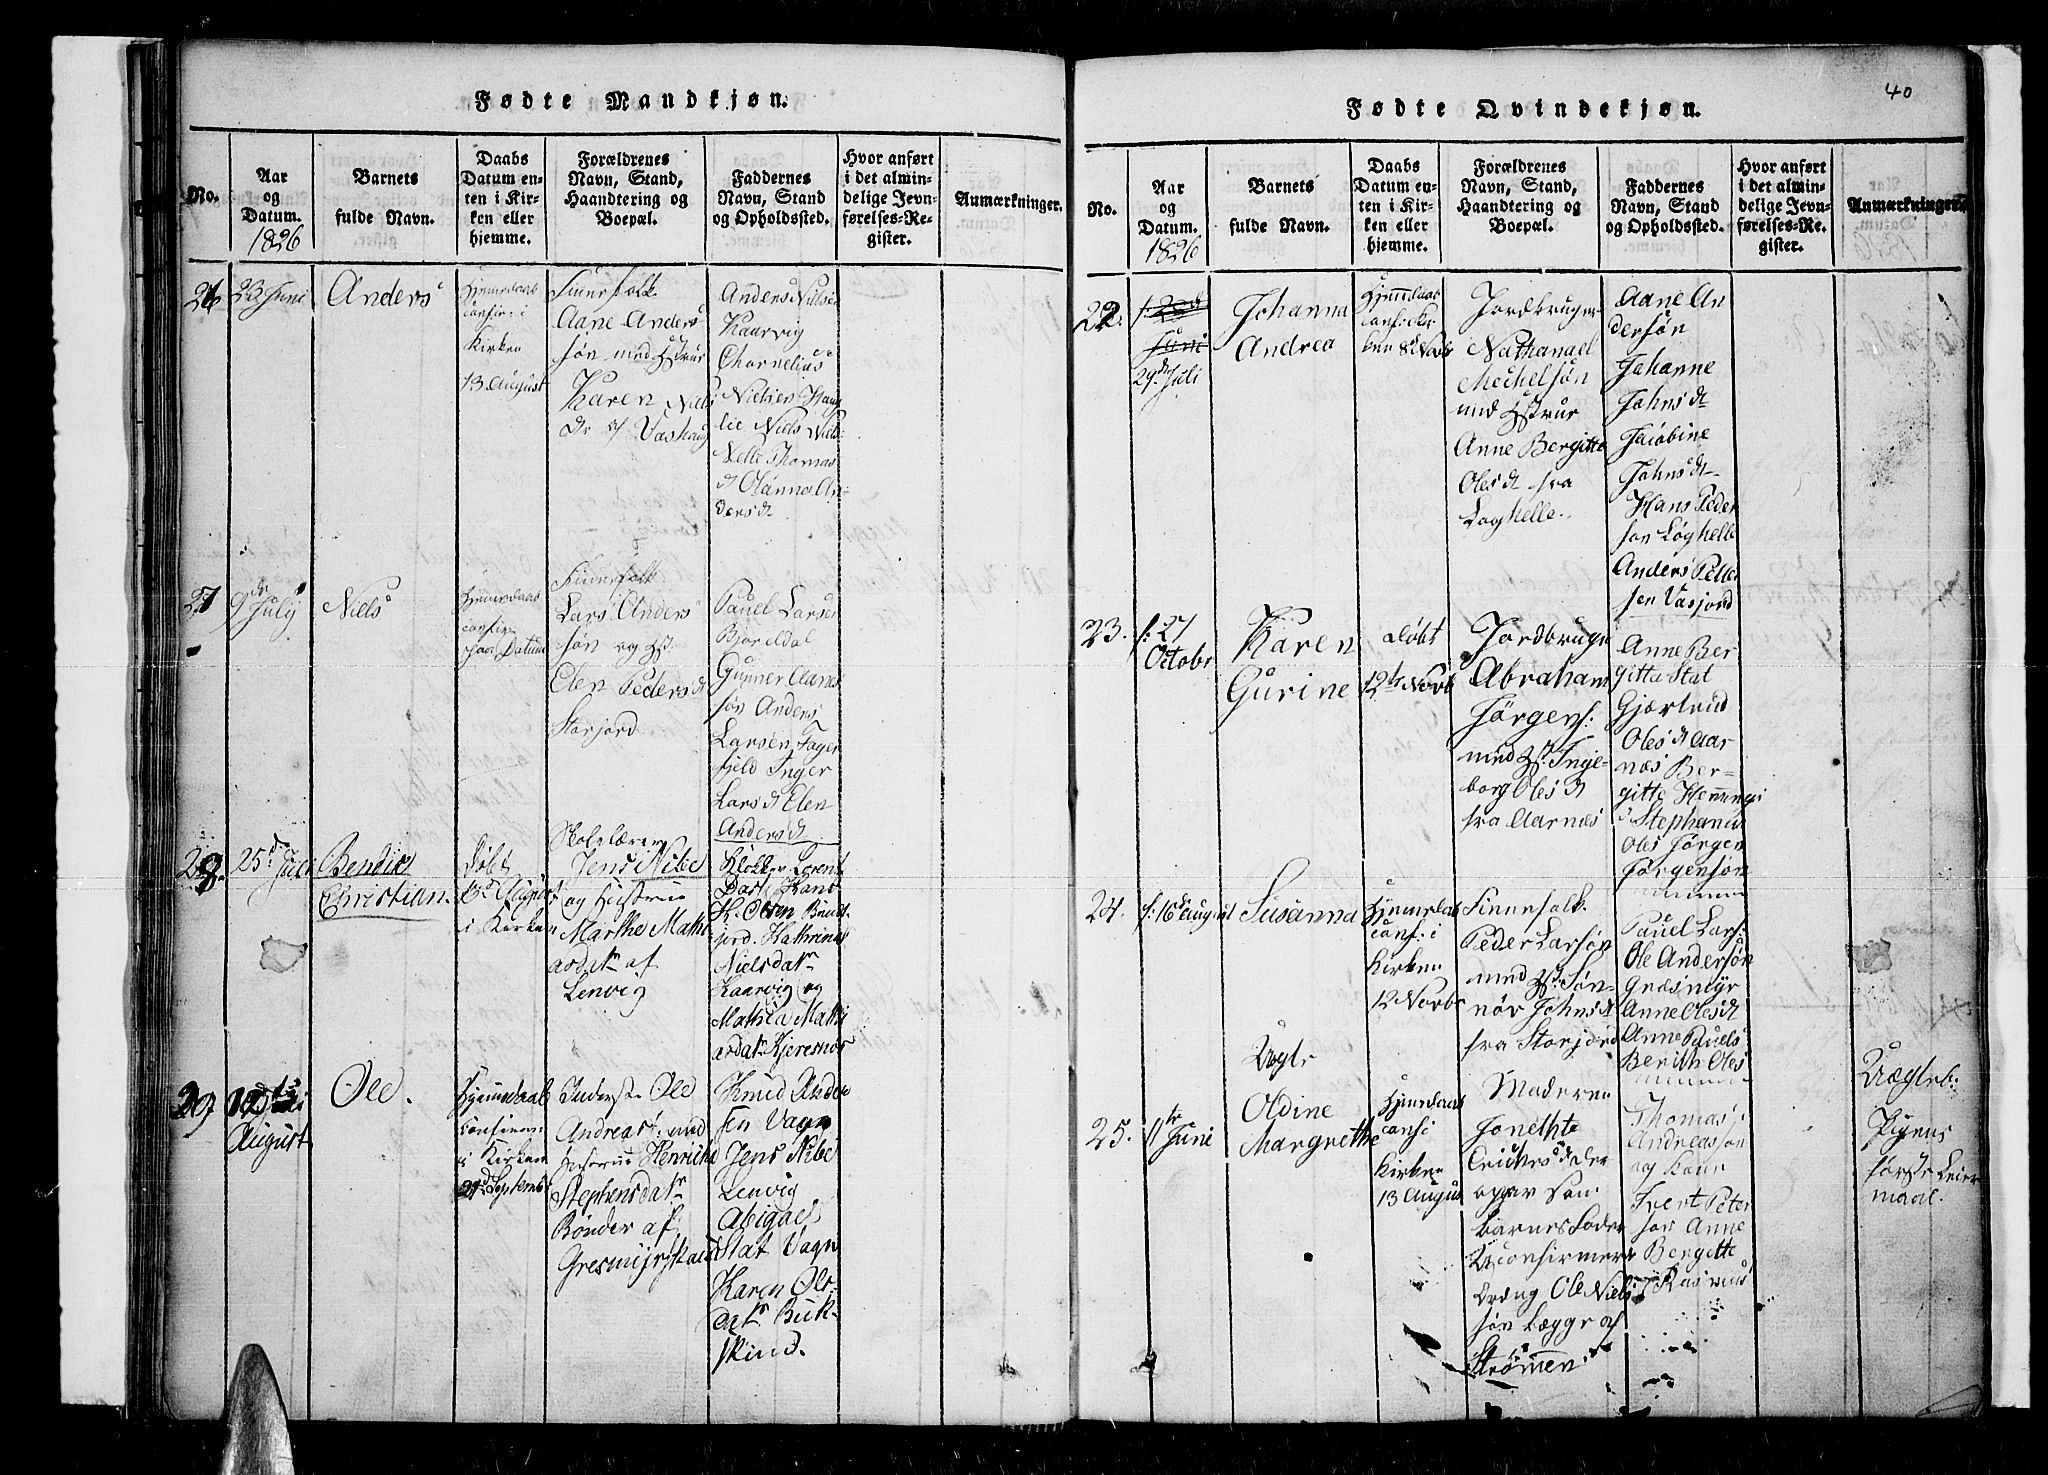 Fødte Mandkjøn.
No.
Aar
og
Datum.
1826
Barnets
fulde Navn.
Daabs
Datum en-
ten i Kir-
ken eller
hjemme.
Forældrenes
Navn, Stand,
Haandtering og
Boepæl.
Faddernes
Navn, Stand
og Opholdssted.
Hvor anført
i det almin-
delige Jevn-
førelses-Re-
gister.
Anmærkninger.
26
23 Juni
Anders
Hjemmedaab
confir: i
Kirken
13 August
Finnefolk
Aane Anders
søn med Hstrue
Karen Nils
Dr af Vashaug
Anders Nilsen
Kaarvig
Chornelius
Nielsen Haug
lie Niels Niels
Nelle Thomas
d Olanna An-
dersd
27
9de July
Niels
Hjemmedaab
confir
Datum
Finnefolk
Lars Anders
søn og Hst.
Elen Pedersd
Storjord
Pauel Larsen
Bjoreldal
Gunner Aanes
søn Anders
Larsen Fager
fjeld Inger
Larsd Elen
Andersd
28.
25d Juli
Bendic
Christian.
Døbt
13d August
i Kirken
Skolelærer
Jens Nibe
og Hustrue
Marthe Math
iasdatr af
Lenvig
Klokker Lorent
Dass Hans
K. Olsen Bend
jord. Kathrina
Nielsdatr
Kaarvig og
Mathia Math
iasdatr Kjeresnæs
29
12te
August
Ole.
Hjemmedaab
confirm:
i Kirken
21d Septembr
Inderst Ole
Andreass: med
Hustrue Henricha
Stephensdatr
Bønder af
Gresmyrskaed
Knud Ander
sen Vagn
Jens Nibe
Lenvig
Abigael
Stat Vagn
Karen Ols-
datr Buk-
skind.
Fødte Qvindekjøn.
40
No.
Aar
og
Datum.
1826
Barnets
fulde Navn.
Daabs
Datum en-
ten i Kir-
ken eller
hjemme.
Forældrenes
Navn, Stand,
Haandtering og
Boepæl.
Faddernes
Navn, Stand
og Opholdssted.
Hvor anført
i det almin-
delige Jevn-
førelses-Re-
gister.
Anmærkninger.
22.
Juni
29d Juli
Johanna
Andrea
Hjemdaab
conf: i Kir
ken 8d Novbr
Jordbruger
Nathanael
Mechelsøn
med Hstrue
Anne Bergitte
Olesd fra
Løghelle.
Aane An
dersøn
Johanne
Johnsd
Jacobine
Johnsd
Hans Peder
son Løghelle
Anders Petter
sen Vasjord
23.
f: 27
Octobr
Karen
Gurine
Døbt
12te Novb
Jordbruger
Abraham
Jørgens:
med Hst. Inge-
borg Olesd
fra Aarnes
Anne Ber
gitta Stat
Gjærlund
Olesd Aar
næs Ber-
gitte Hemmings
d Stephanus
Ols Jørgen
Jørgensøn
24.
f: 16d August
Susanna
Hjemmedaab
conf: i
Kirken
12 Novbr
Finnefolk.
Peder Larsøn
med Hst: Søn-
nøv Johnsd
fra Storjord
Pauel Lars:
Ole Andersøn
Græsmyr
Anne Olesd
Anne Pauels
Berith Oles
25.
11te Juni
Uægte
Oldine
Margrethe
Hjemdaab
conf i
Kirken
13 August
Moderen
Jonethte
Erichsd der
opgav som
Barnefader
Uconfirmert
Dreng Ole Niels
søn Legge af
Strømen
Thomas
Andreassøn
og Kone
Evert Peter
søn Anne
Bergitte
Rasmus
Uægte:
Pigens
første Leier
maal.